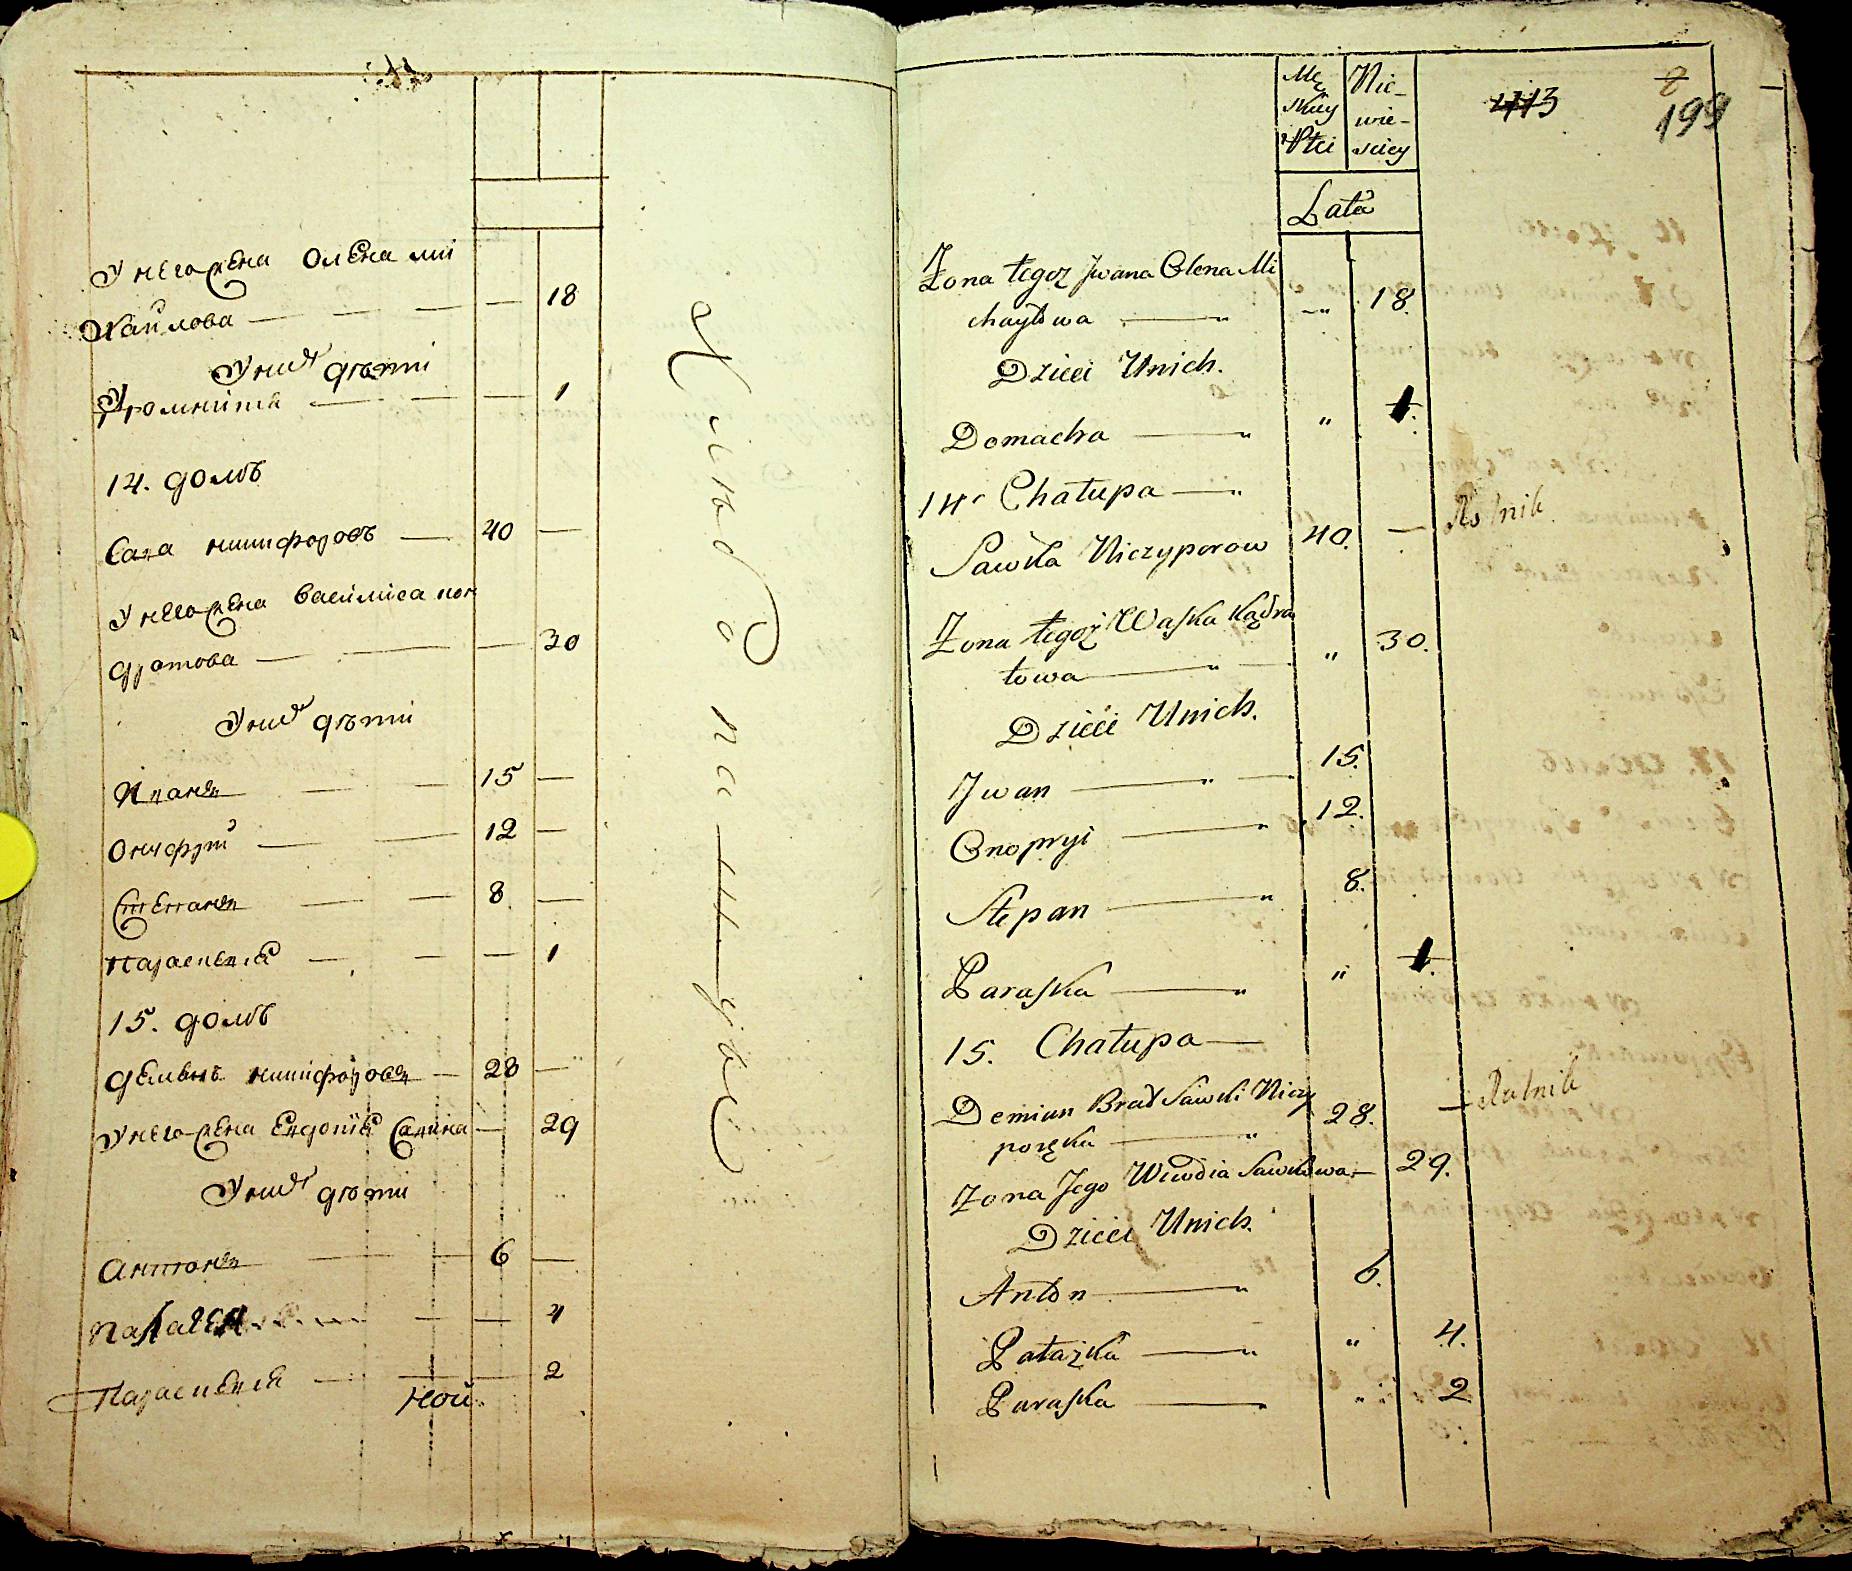 У него жена Олена Ми
хайлова — — — — 18
У них дѣти
— — — 1
14. домъ
Сава Ничифоровъ — 40 —
У него жена Василиса Кон
дратова — — — — 30
У них дѣти
Иванъ — — 15 —
Онуфрій — — 12 —
Степанъ — — 8 —
Параскевія — — — 1
15. домъ
Демьянъ Ничифоровъ — 28 —
У него жена Евдокія Савина — 29
У них дѣти
Антонъ — 6 —
— — 4
Параскевія — — 2
Ной
Хлѣбопашцы
Mę
skiey
Płci
Nie-
wie-
sciey
Lata
413
199
Żona tegoż Jwana Olena Mi
chayłowa — " -" 18.
Dzieci Unich.
Domacha — " " 1.
14. Chałupa — "
Sawka Niczyporow 40. — Rolnik
Żona tegoż Waska Kądra
towa — " — " 30.
Dzieci Unich.
Jwan — " — 15.
Onopryi — " 12.
Stepan — " 8.
Paraska — " " 1.
15. Chałupa —
Demian Brat Sawki Niczy
poręka — " 28. — Rolnik
Żona Jego Wiewdia Sawkowa — 29.
Dzieci Unich.
Anton — " 6.
Pałażka — " " 4.
Paraska — " " 2